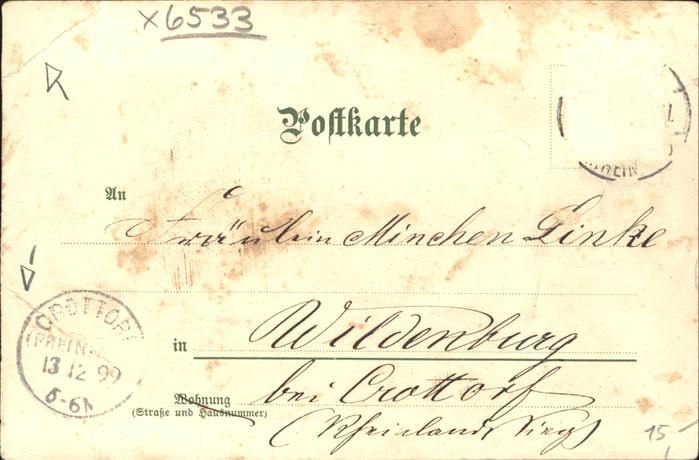 x6533
Postkarte
An
Fräulein Minchen Linke
in Wildenburg
Wohnung
(Straße und Hausnummer)
bei Crottorf
(Rheinland Sieg)
CROTTORF
(RHEIN
13 12 99
6-6N
RHEIN
15